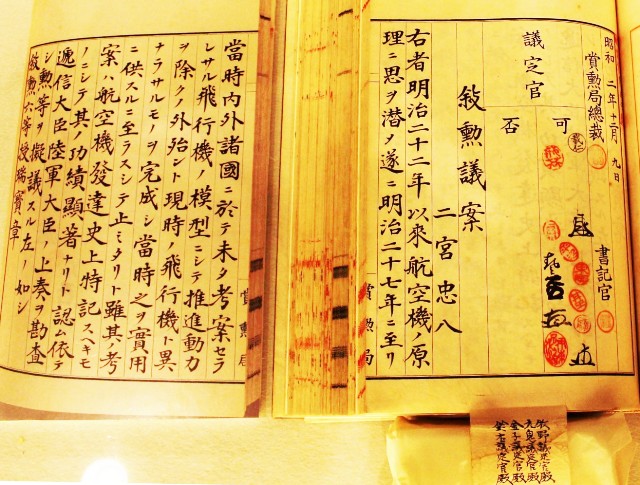 昭和 二年十二月 九日
賞勲局總裁
書記官
議定官
可
否
敍勲議案
二宮忠八
右者明治二十二年以來航空機ノ原
理ニ思ヲ潜メ遂ニ明治二十七年ニ至リ
賞勲局
賞勲局
當時内外諸國ニ於テ未タ考案セラ
レサル飛行機ノ模型ニシテ推進動力
ヲ除クノ外殆ント現時ノ飛行機ト異
ナラサルモノヲ完成シ當時之ヲ實用
ニ供スルニ至ラスシテ止ミタリト雖其ノ考
案ハ航空機發達史上特記スヘキモ
ノニシテ其ノ功績顯著ナリト認ム依テ
遞信大臣陸軍大臣ノ上奏ヲ勘査
シ勲等ヲ擬議スル左ノ如シ
敍勲六等授瑞寶章
牧野議定官殿
議定官殿
金子議定官殿
議定官殿